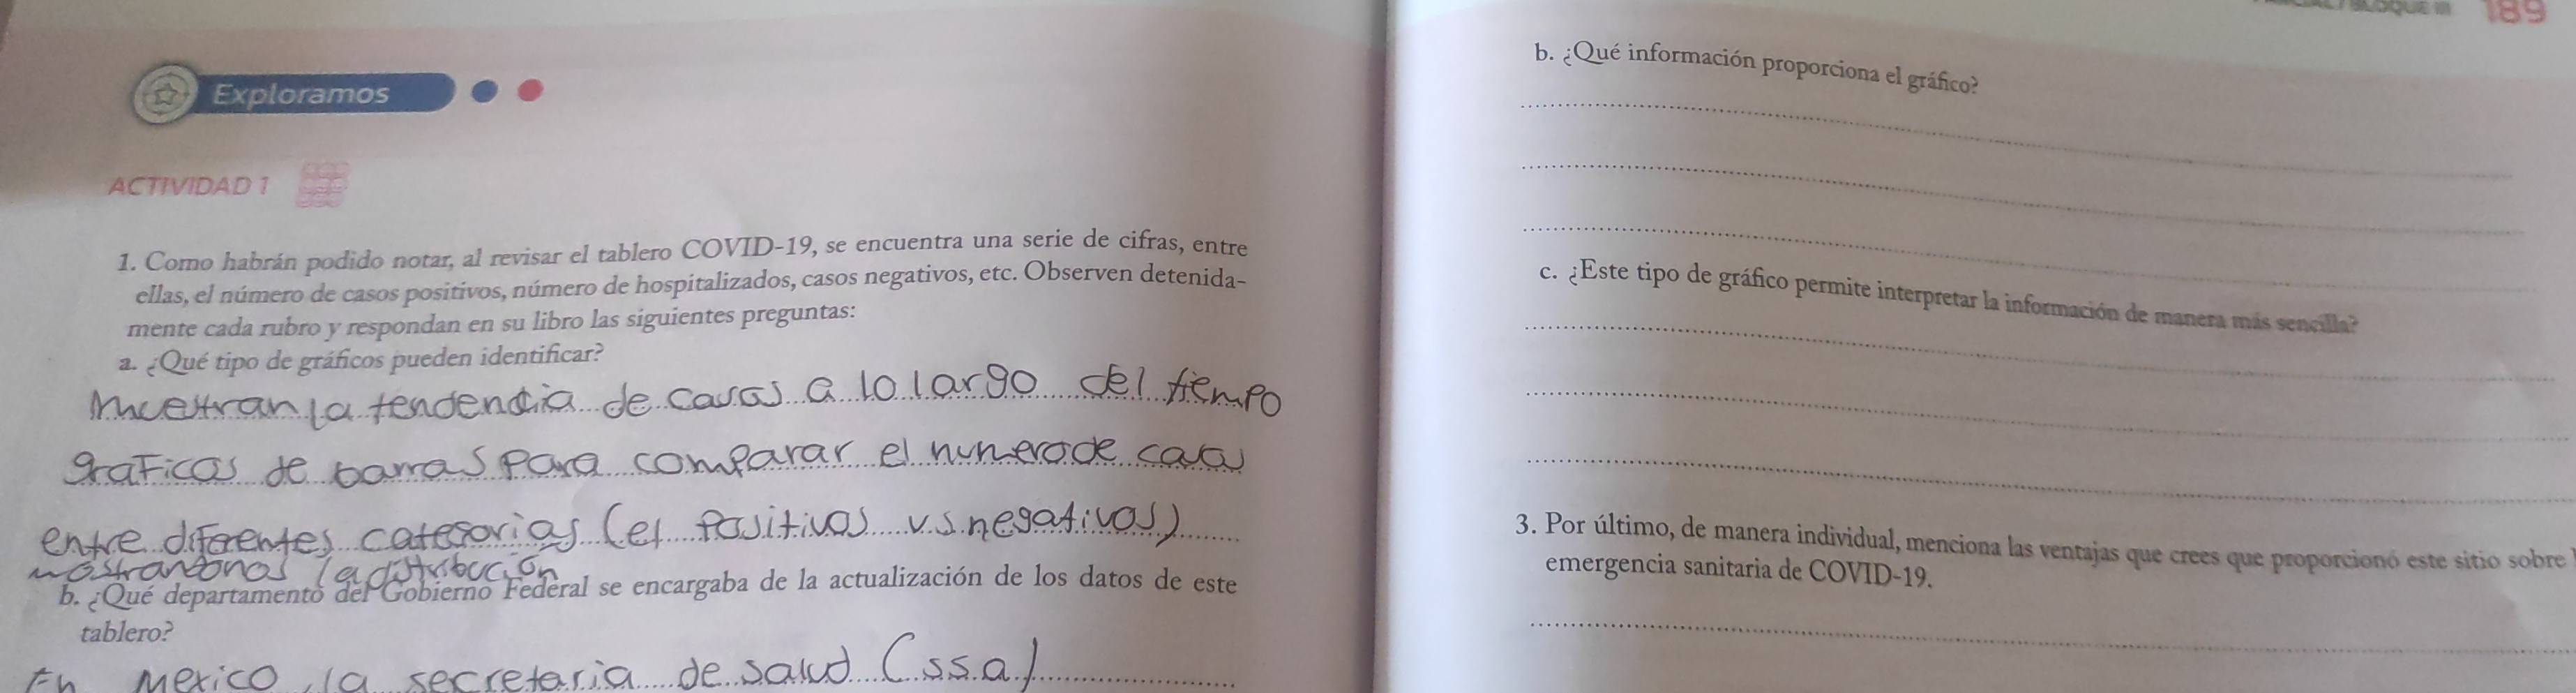 Exploramos
ACTIVIDAD 1
1. Como habrán podido notar, al revisar el tablero COVID-19, se encuentra una serie de cifras, entre
ellas, el número de casos positivos, número de hospitalizados, casos negativos, etc. Observen detenida-
mente cada rubro y respondan en su libro las siguientes preguntas:
a. ¿Qué tipo de gráficos pueden identificar?
muestran la tendencia de casos a lo largo del tiempo
graficas de barras para comparar el numero de casos
entre diferentes categorias (ej positivos v.s negativos)
mostrandonos la distribución
b. ¿Qué departamento del Gobierno Federal se encargaba de la actualización de los datos de este
tablero?
En Mexico, la secretaria de salud (s.s.a)
BLOQUE III 189
b. ¿Qué información proporciona el gráfico?
c. ¿Este tipo de gráfico permite interpretar la información de manera más sencilla?
3. Por último, de manera individual, menciona las ventajas que crees que proporcionó este sitio sobre
emergencia sanitaria de COVID-19.